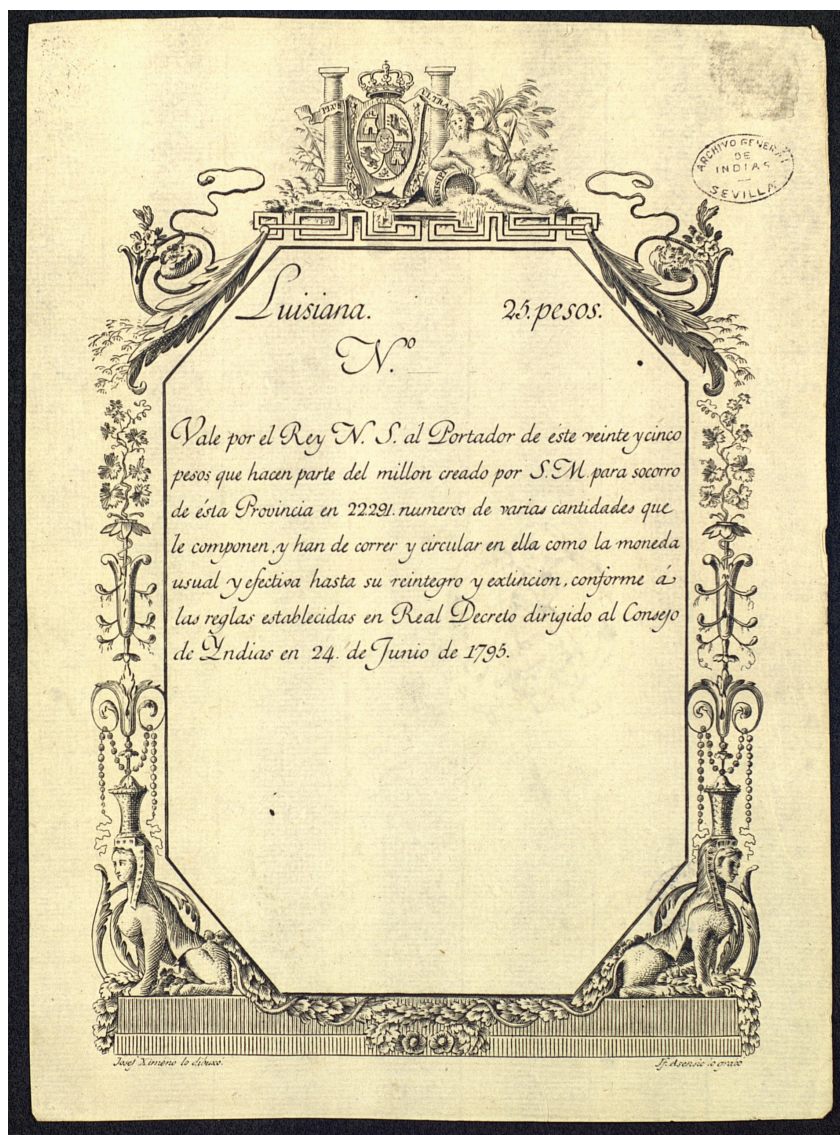 PLUS ULTRA
ARCHIVO GENERAL
DE
INDIAS
SEVILLA
Luisiana. 25. pesos.
N.º
Vale por el Rey N. S. al Portador de este veinte y cinco
pesos que hacen parte del millon creado por S. M. para socorro
de ésta Provincia en 22.291. numeros de varias cantidades que
le componen, y han de correr y circular en ella como la moneda
usual y efectiva hasta su reintegro y extincion, conforme á
las reglas establecidas en Real Decreto dirigido al Consejo
de Yndias en 24. de Junio de 1795.
Josef Ximeno lo dibuxo. Asensio lo grabo